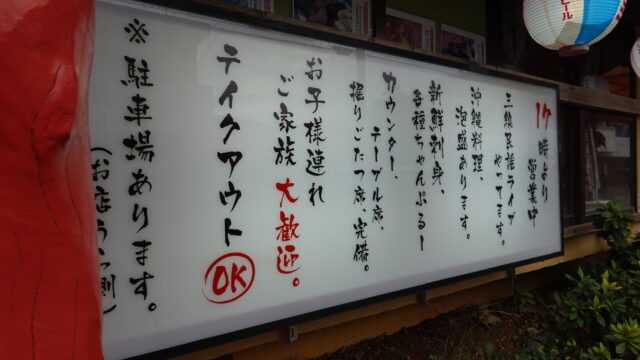 17時より
営業中
三線民謡ライブ
やってます。
沖縄料理、
泡盛あります。
新鮮刺身、
各種ちゃんぷるー
カウンター、
テーブル席、
掘りごたつ席、完備。
お子様連れ
ご家族 大歓迎。
テイクアウト OK
※駐車場あります。
(お店うら側)
ビール